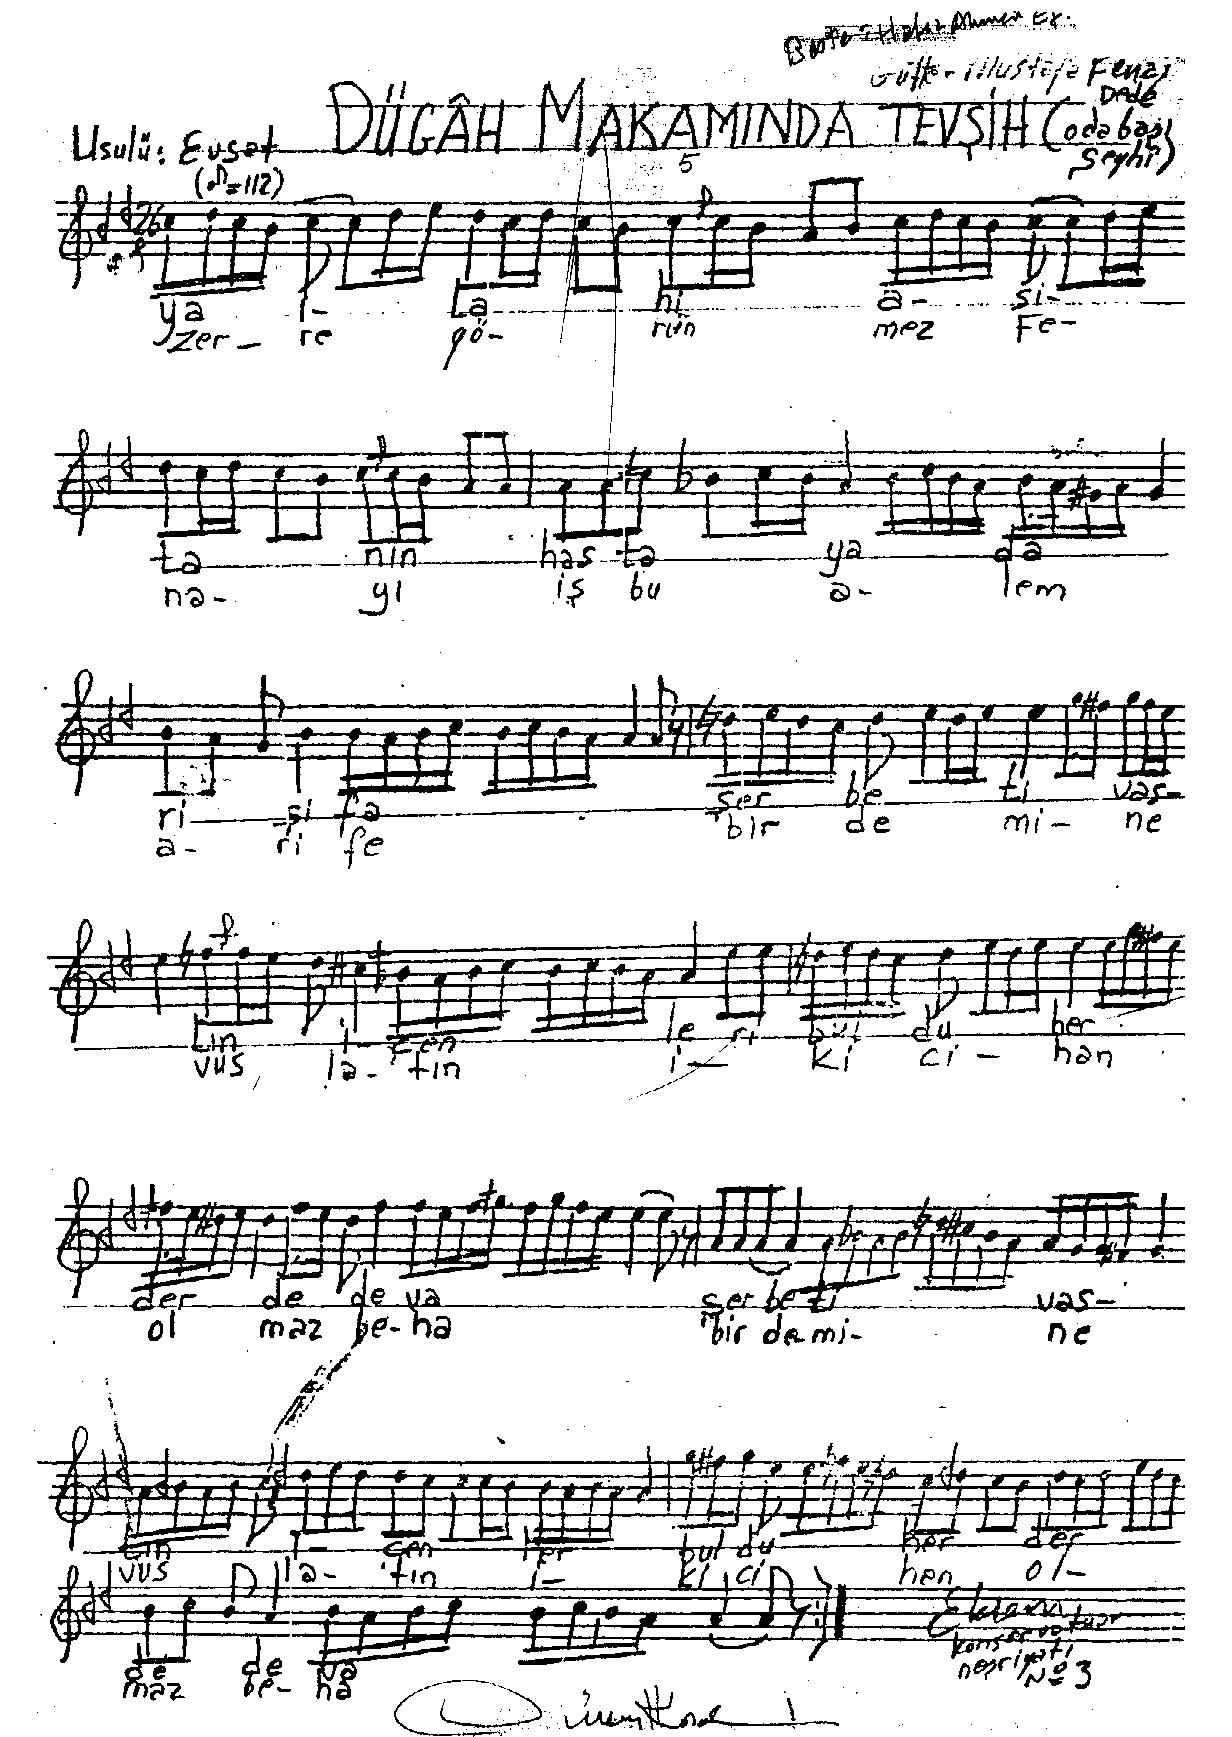 Beste: Hafız Ahmet Ef.
Güfte: Mustafa Fenaj
Dede
DÜGÂH MAKAMINDA TEVŞİH (odabaşı
Şeyhi)
Usulü: Evsat
(♪=112)
5
26
ya i- La hi a- si-
zer- re gö- rün mez Fe-
ta nin has ta ya da
na- yı iş bu a- lem
ri şi fa ser be ti vas-
a- ri fe bir de mi- ne
Lin i- çen le ri bul du her
vus la- tın i- ki ci- han
der de de va ser be ti vas-
ol maz be-ha bir de mi- ne
Lin i- çen ler bul du her der
vus la- tın i- ki ci hen ol-
de de va
maz be- ha
Eklem
konservatuar
neşriyatı
No 3